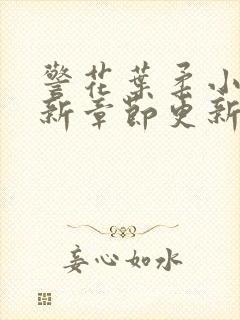 警花葉柔小
新章節更新
妄心如水